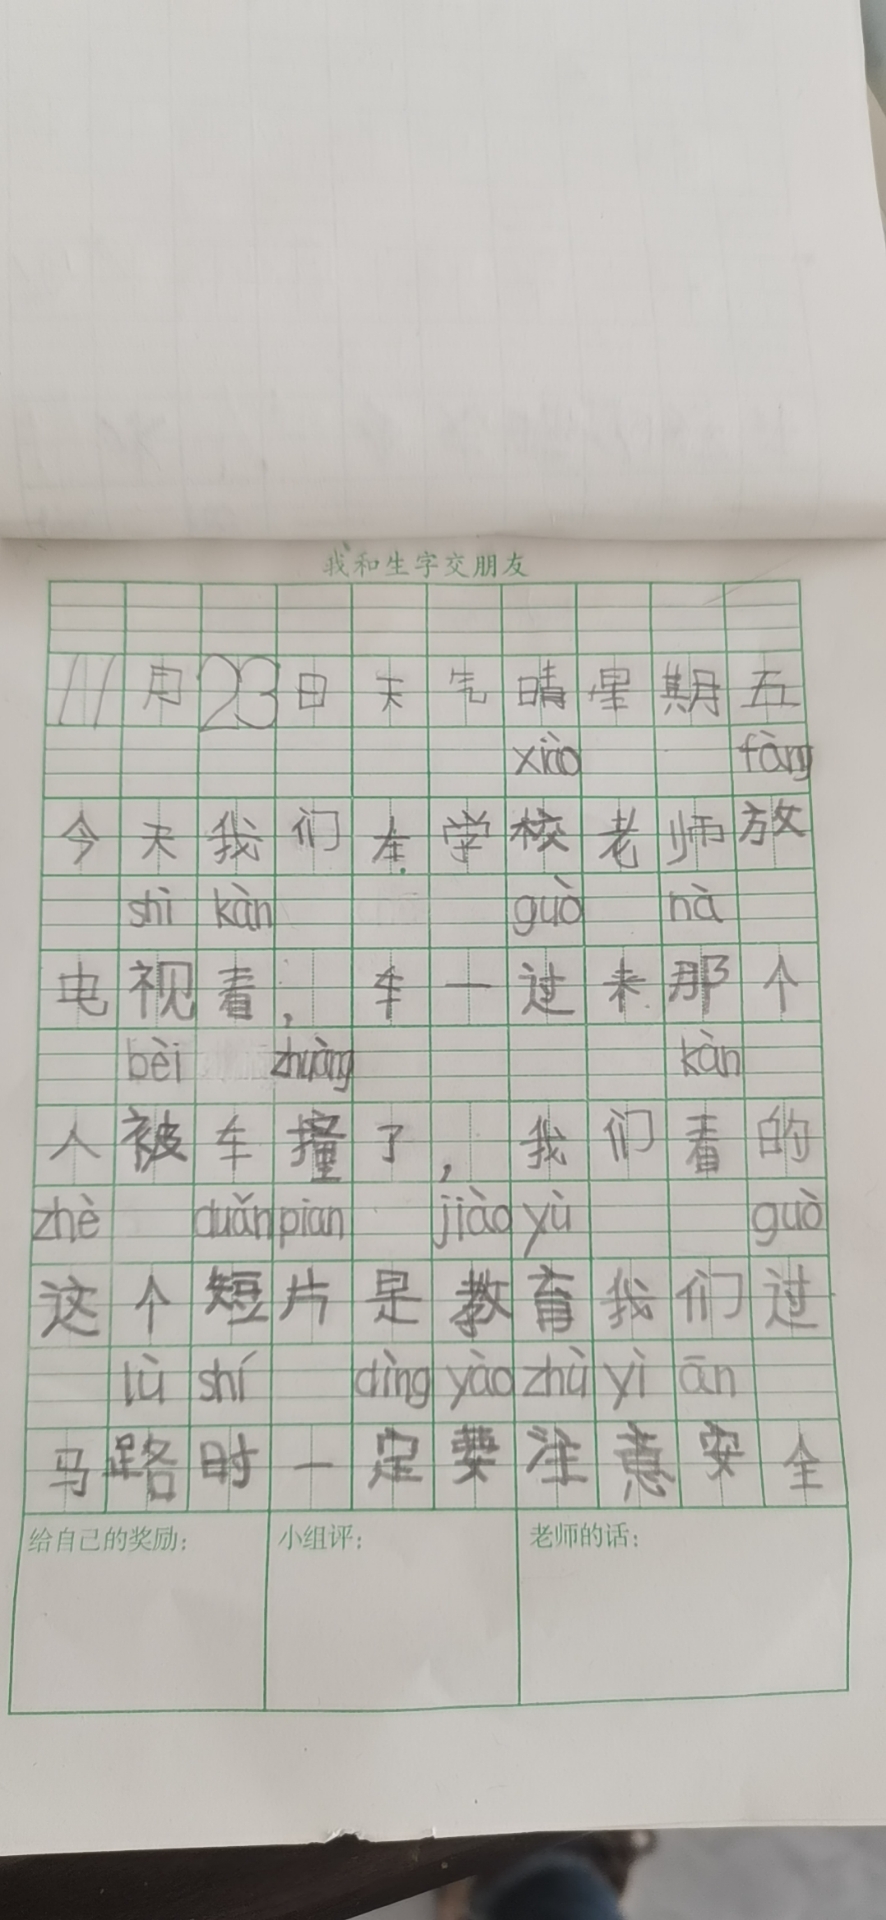 我和生字交朋友
11月23日天气晴星期五
xiào fàng
今天我们在学校老师放
shì kàn guò nà
电视看，车一过来那个
bèi zhuàng kàn
人被车撞了，我们看的
zhè duǎn pian jiào yù guò
这个短片是教育我们过
lù shí dìng yào zhù yì ān
马路时一定要注意安全
给自己的奖励： 小组评： 老师的话：